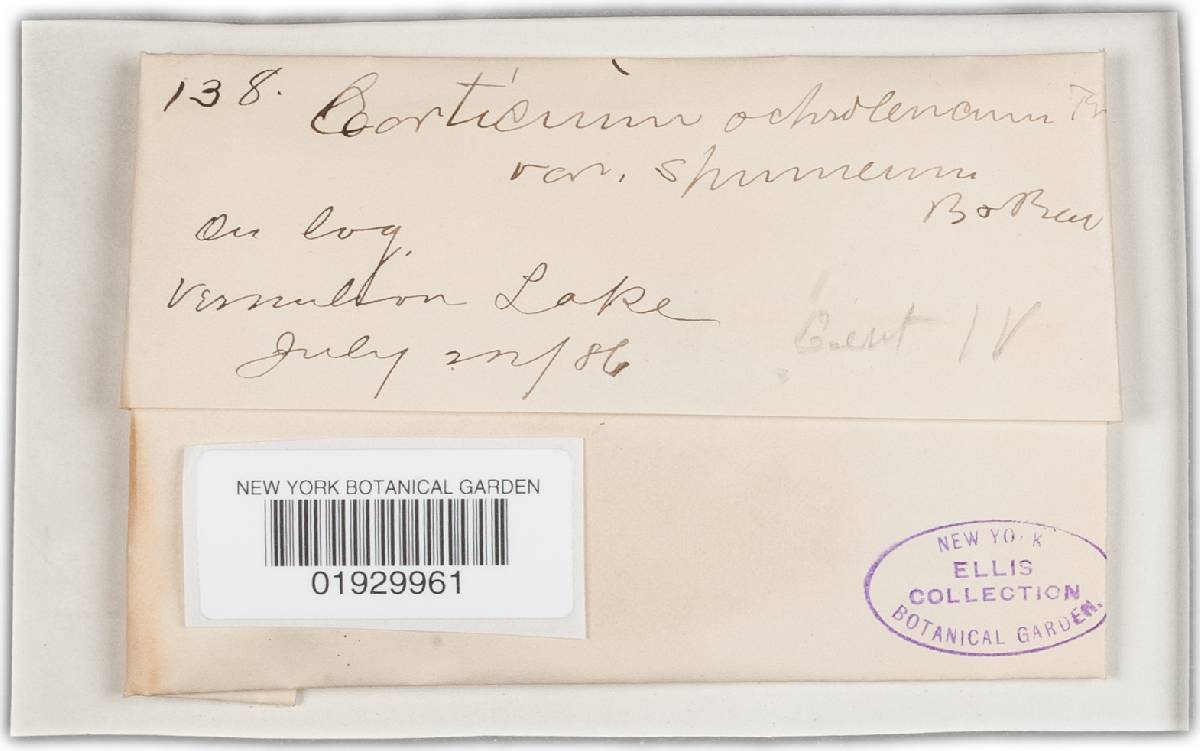 138. Corticium ochroleucum Fr
var. spumeum
B & Rav
On log
Vermillion Lake
July 22/86
NEW YORK BOTANICAL GARDEN
01929961
NEW YORK
ELLIS
COLLECTION
BOTANICAL GARDEN.